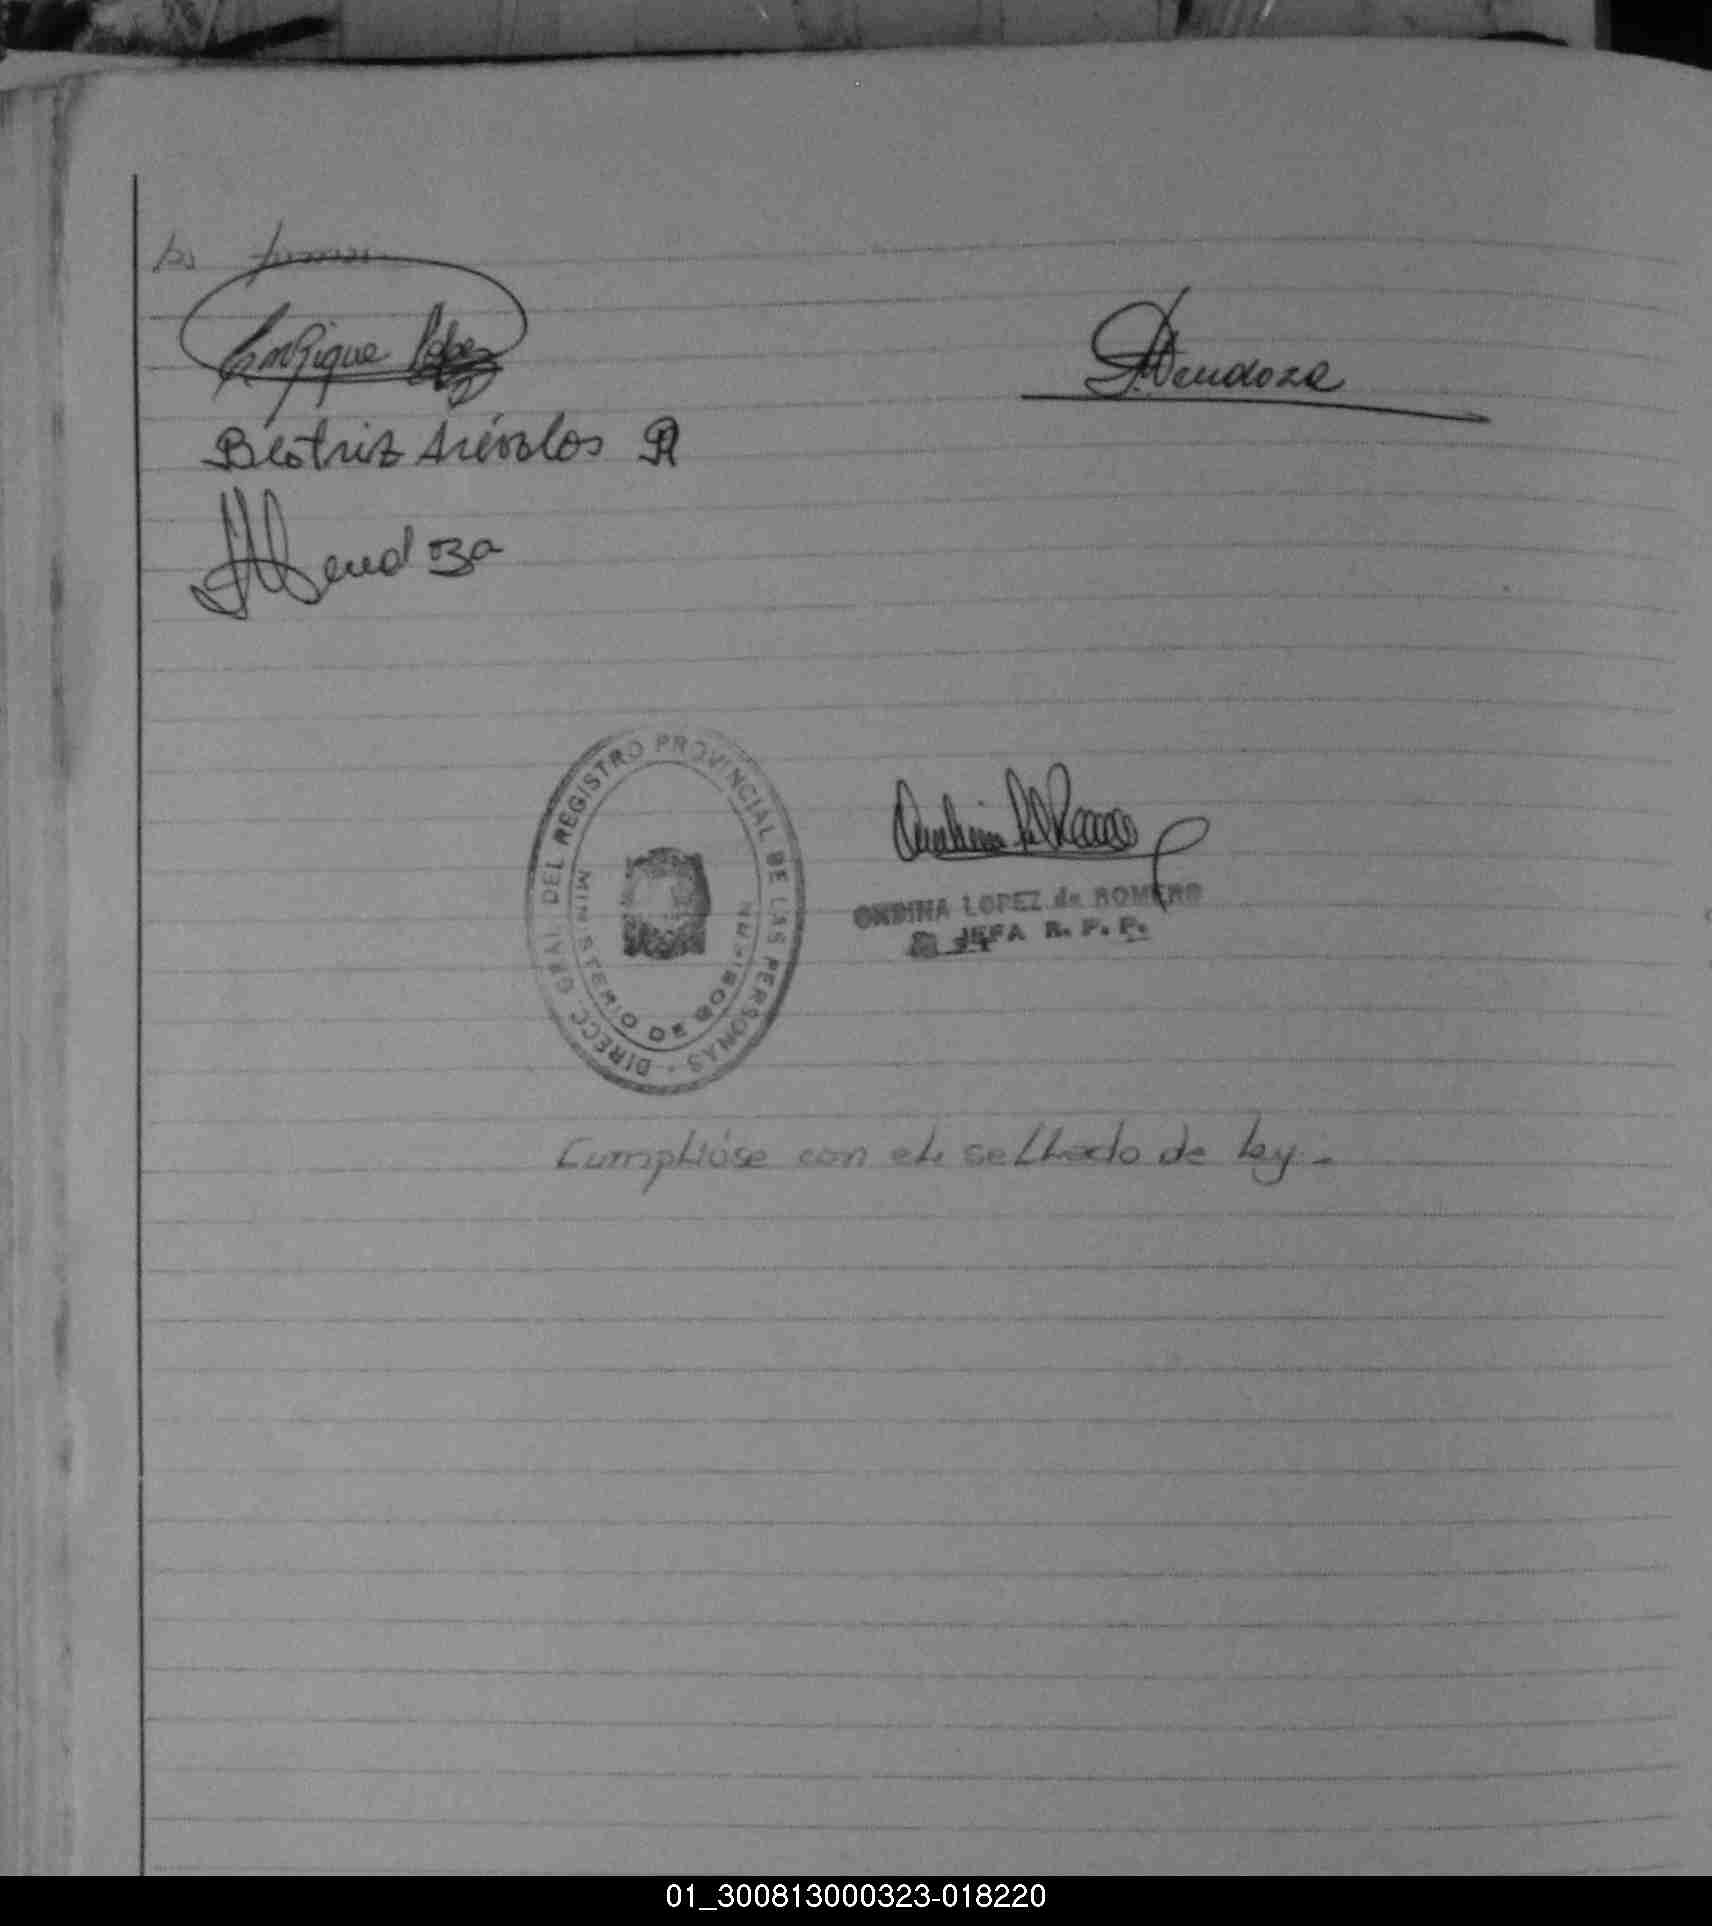 Enrique López
Mendoza
Beatriz Arévalos
Mendoza
DIRECC. GRAL. DEL REGISTRO PROVINCIAL DE LAS PERSONAS -
MINISTERIO DE GOBIERN
ONDINA LOPEZ de ROMERO
JEFA R. P. P.
Cumplióse con el sellado de ley.-
01_300813000323-018220